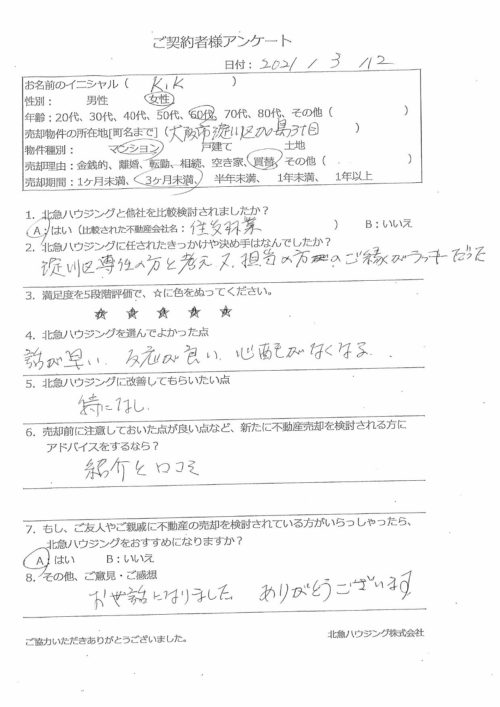 ご契約者様アンケート
日付: 2021 / 3 /12
お名前のイニシャル ( K.K )
性別: 男性 女性
年齢:20代、30代、40代、50代、60代、70代、80代、その他 ( )
売却物件の所在地[町名まで] (大阪市淀川区加島3丁目 )
物件種別: マンション 戸建て 土地
売却理由:金銭的、離婚、転勤、相続、空き家、買替、その他 ( )
売却期間:1ヶ月未満、3ヶ月未満、半年未満、1年未満、1年以上
1. 北急ハウジングと他社を比較検討されましたか?
A:はい (比較された不動産会社名: 住友林業 ) B:いいえ
2. 北急ハウジングに任されたきっかけや決め手はなんでしたか?
淀川区専任の方と考え 又、担当の方とのご縁がラッキーだった
3. 満足度を5段階評価で、☆に色をぬってください。
★ ★ ★ ★ ★
4. 北急ハウジングを選んでよかった点
話が早い、反応が良い、心配がなくなる、
5. 北急ハウジングに改善してもらいたい点
特になし
6. 売却前に注意しておいた点が良い点など、新たに不動産売却を検討される方に
アドバイスをするなら?
紹介と口コミ
7. もし、ご友人やご親戚に不動産の売却を検討されている方がいらっしゃったら、
北急ハウジングをおすすめになりますか?
A:はい B:いいえ
8. その他、ご意見・ご感想
お世話になりました ありがとうございます
ご協力いただきありがとうございました。 北急ハウジング株式会社